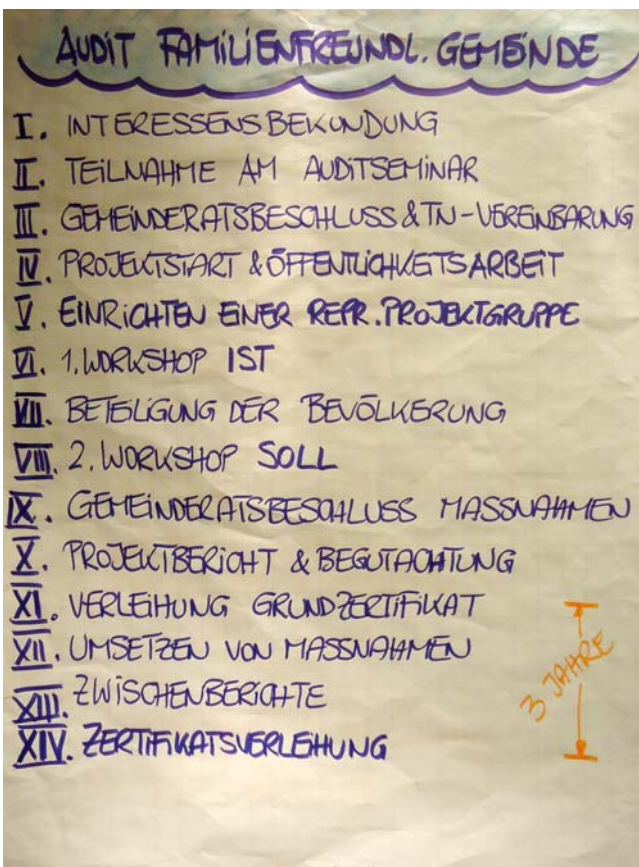 AUDIT FAMILIENFREUNDL. GEMEINDE
I. INTERESSENSBEKUNDUNG
II. TEILNAHME AM AUDITSEMINAR
III. GEMEINDERATSBESCHLUSS & TN-VEREINBARUNG
IV. PROJEKTSTART & ÖFFENTLICHKEITSARBEIT
V. EINRICHTEN EINER REPR. PROJEKTGRUPPE
VI. 1. WORKSHOP IST
VII. BETEILIGUNG DER BEVÖLKERUNG
VIII. 2. WORKSHOP SOLL
IX. GEMEINDERATSBESCHLUSS MASSNAHMEN
X. PROJEKTBERICHT & BEGUTACHTUNG
XI. VERLEIHUNG GRUNDZERTIFIKAT
XII. UMSETZEN VON MASSNAHMEN
XIII. ZWISCHENBERICHTE
XIV. ZERTIFIKATSVERLEIHUNG
3 JAHRE